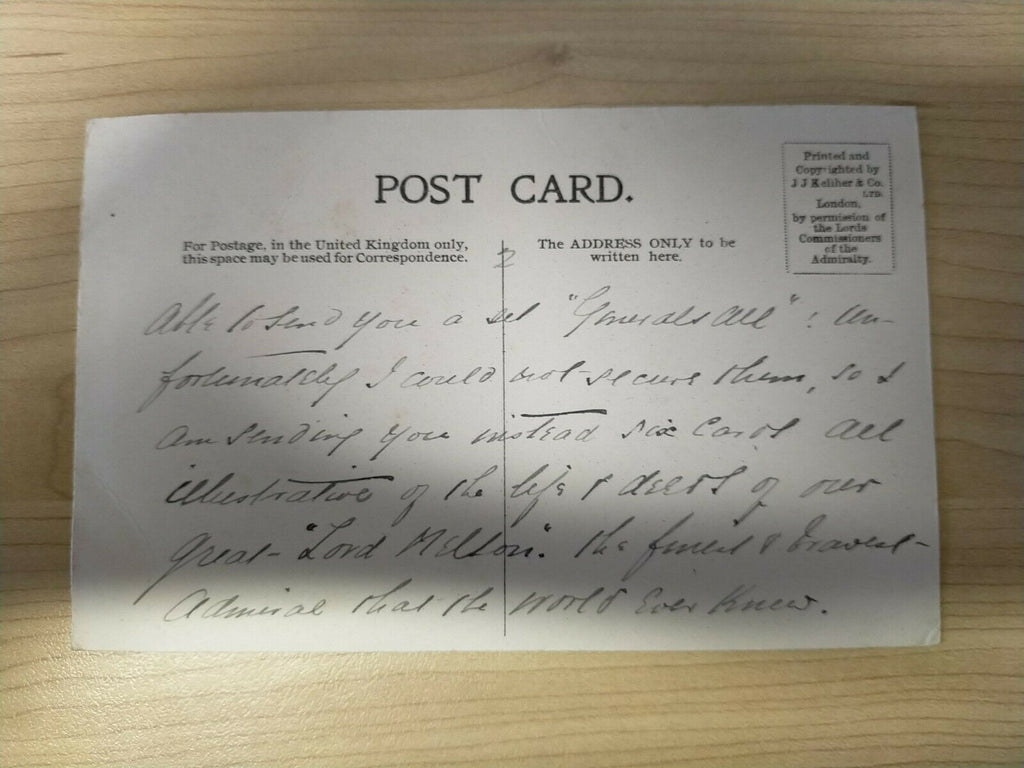 POST CARD.
For Postage, in the United Kingdom only,
this space may be used for Correspondence.
The ADDRESS ONLY to be
written here.
Printed and
Copyrighted by
J J Keliher & Co.
LTD.
London,
by permission of
the Lords
Commissioners
of the
Admiralty.
2
Able to send you a set "Generals all" ! Un-
fortunately I could not secure them, so I
am sending you instead six Cards all
illustrative of the life & deeds of our
great "Lord Nelson". the finest & bravest
Admiral that the World Ever Knew.